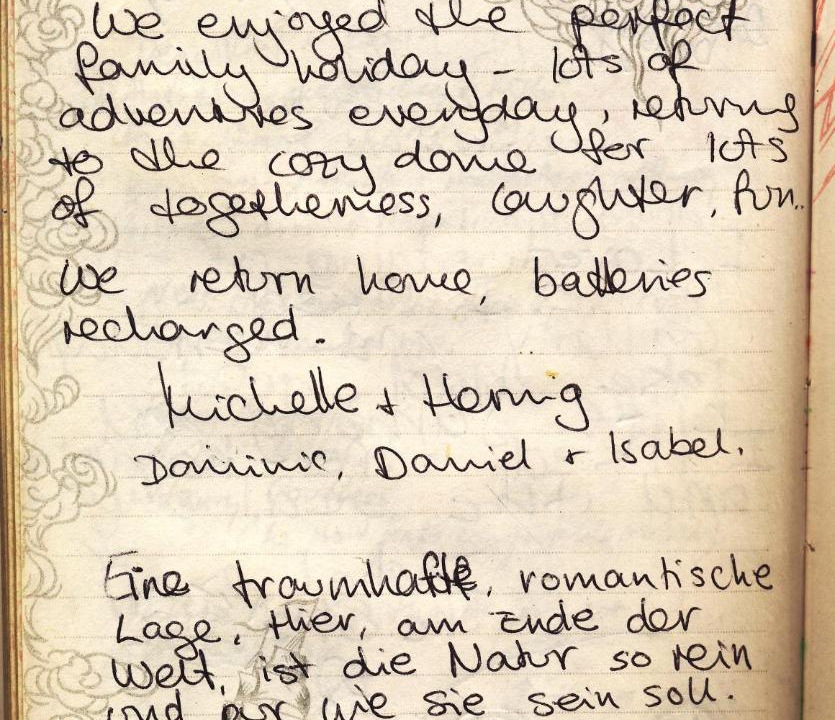 We enjoyed the perfect
family holiday - lots of
adventures everyday, returning
to the cozy dome for lots
of togetherness, laughter, fun..
We return home, batteries
recharged.
Michelle + Hennig
Dominic, Daniel + Isabel.
Eine traumhafte, romantische
Lage. Hier, am Ende der
Welt, ist die Natur so rein
und pur wie sie sein soll.